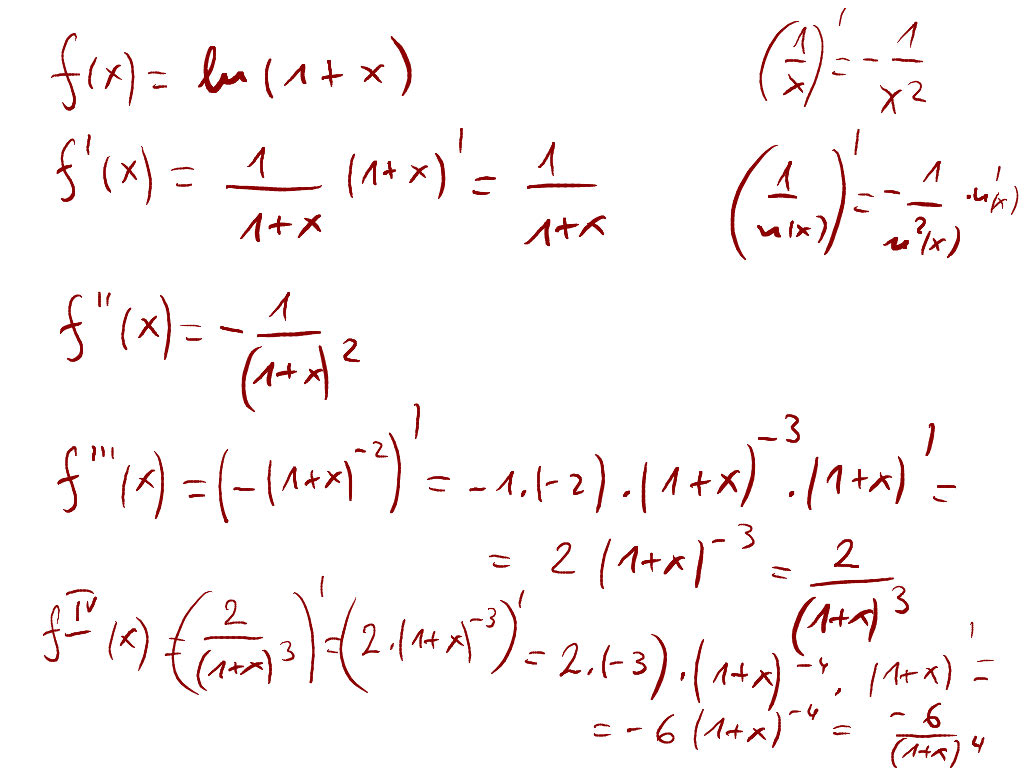 f(x) = ln(1+x)
(1/x)' = -1/x²
f'(x) = 1/(1+x) (1+x)' = 1/(1+x)
(1/u(x))' = -1/u²(x) · u'(x)
f''(x) = -1/(1+x)²
f'''(x) = (-(1+x)⁻²)' = -1·(-2)·(1+x)⁻³·(1+x)' =
= 2(1+x)⁻³ = 2/(1+x)³
f^IV(x) = (2/(1+x)³)' = (2·(1+x)⁻³)' = 2·(-3)·(1+x)⁻⁴·(1+x)' =
= -6(1+x)⁻⁴ = -6/(1+x)⁴